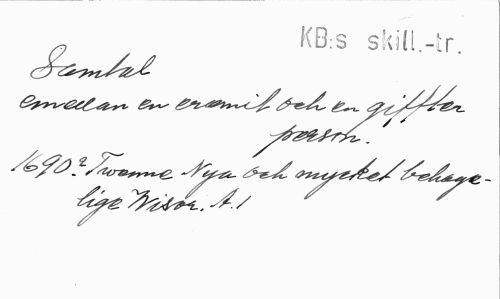 KB:s skill.-tr.
Samtal
emellan en eremit och en giffter
person.
1690? Twenne Nya och mycket behage-
lige Wisor. A.1